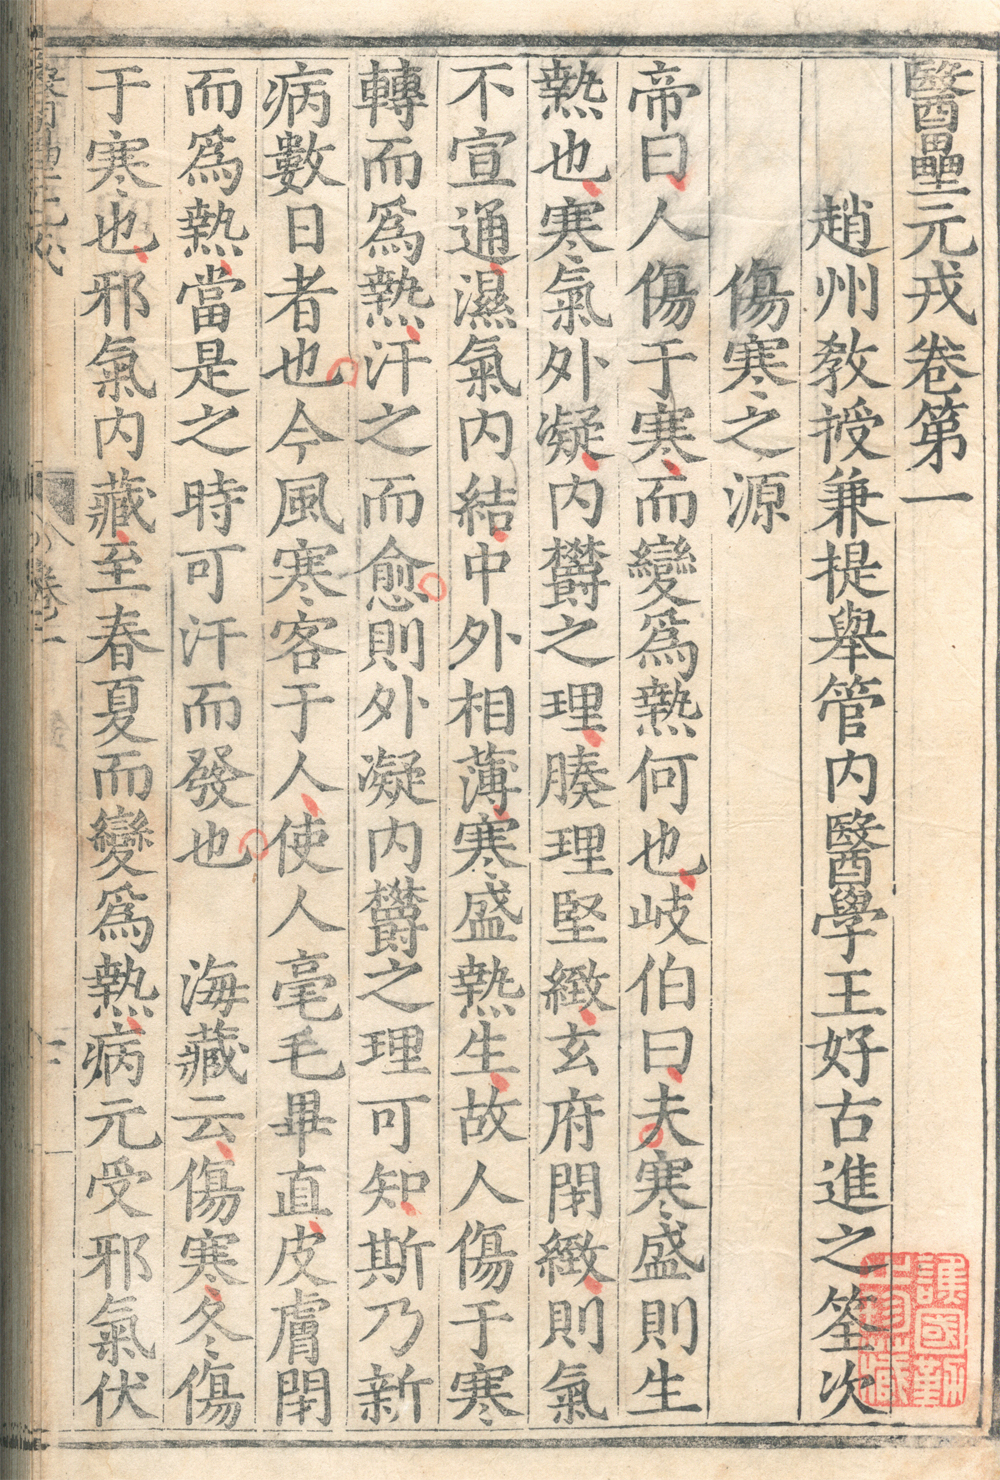 醫壘元戎卷第一
趙州教授兼提舉管內醫學王好古進之筌次
傷寒之源
帝曰人傷于寒而變爲熱何也岐伯曰夫寒盛則生
熱也寒氣外凝內欝之理腠理堅緻玄府閉緻則氣
不宣通濕氣內結中外相薄寒盛熱生故人傷于寒
轉而爲熱汗之而愈則外凝內欝之理可知斯乃新
病數日者也今風寒客于人使人毫毛畢直皮膚閉
而爲熱當是之時可汗而發也　海藏云傷寒冬傷
于寒也邪氣內藏至春夏而變爲熱病元受邪氣伏